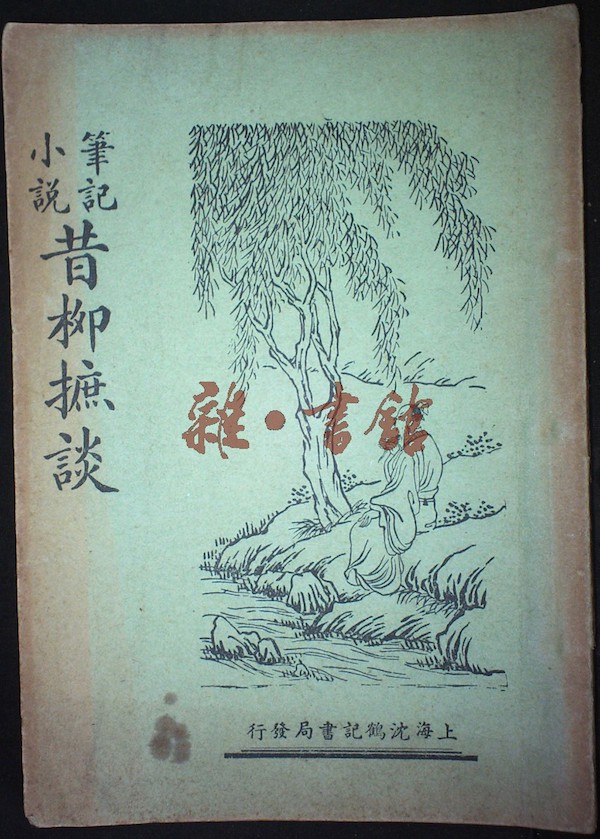 筆記
小説
昔柳摭談
雜·書館
上海沈鶴記書局發行